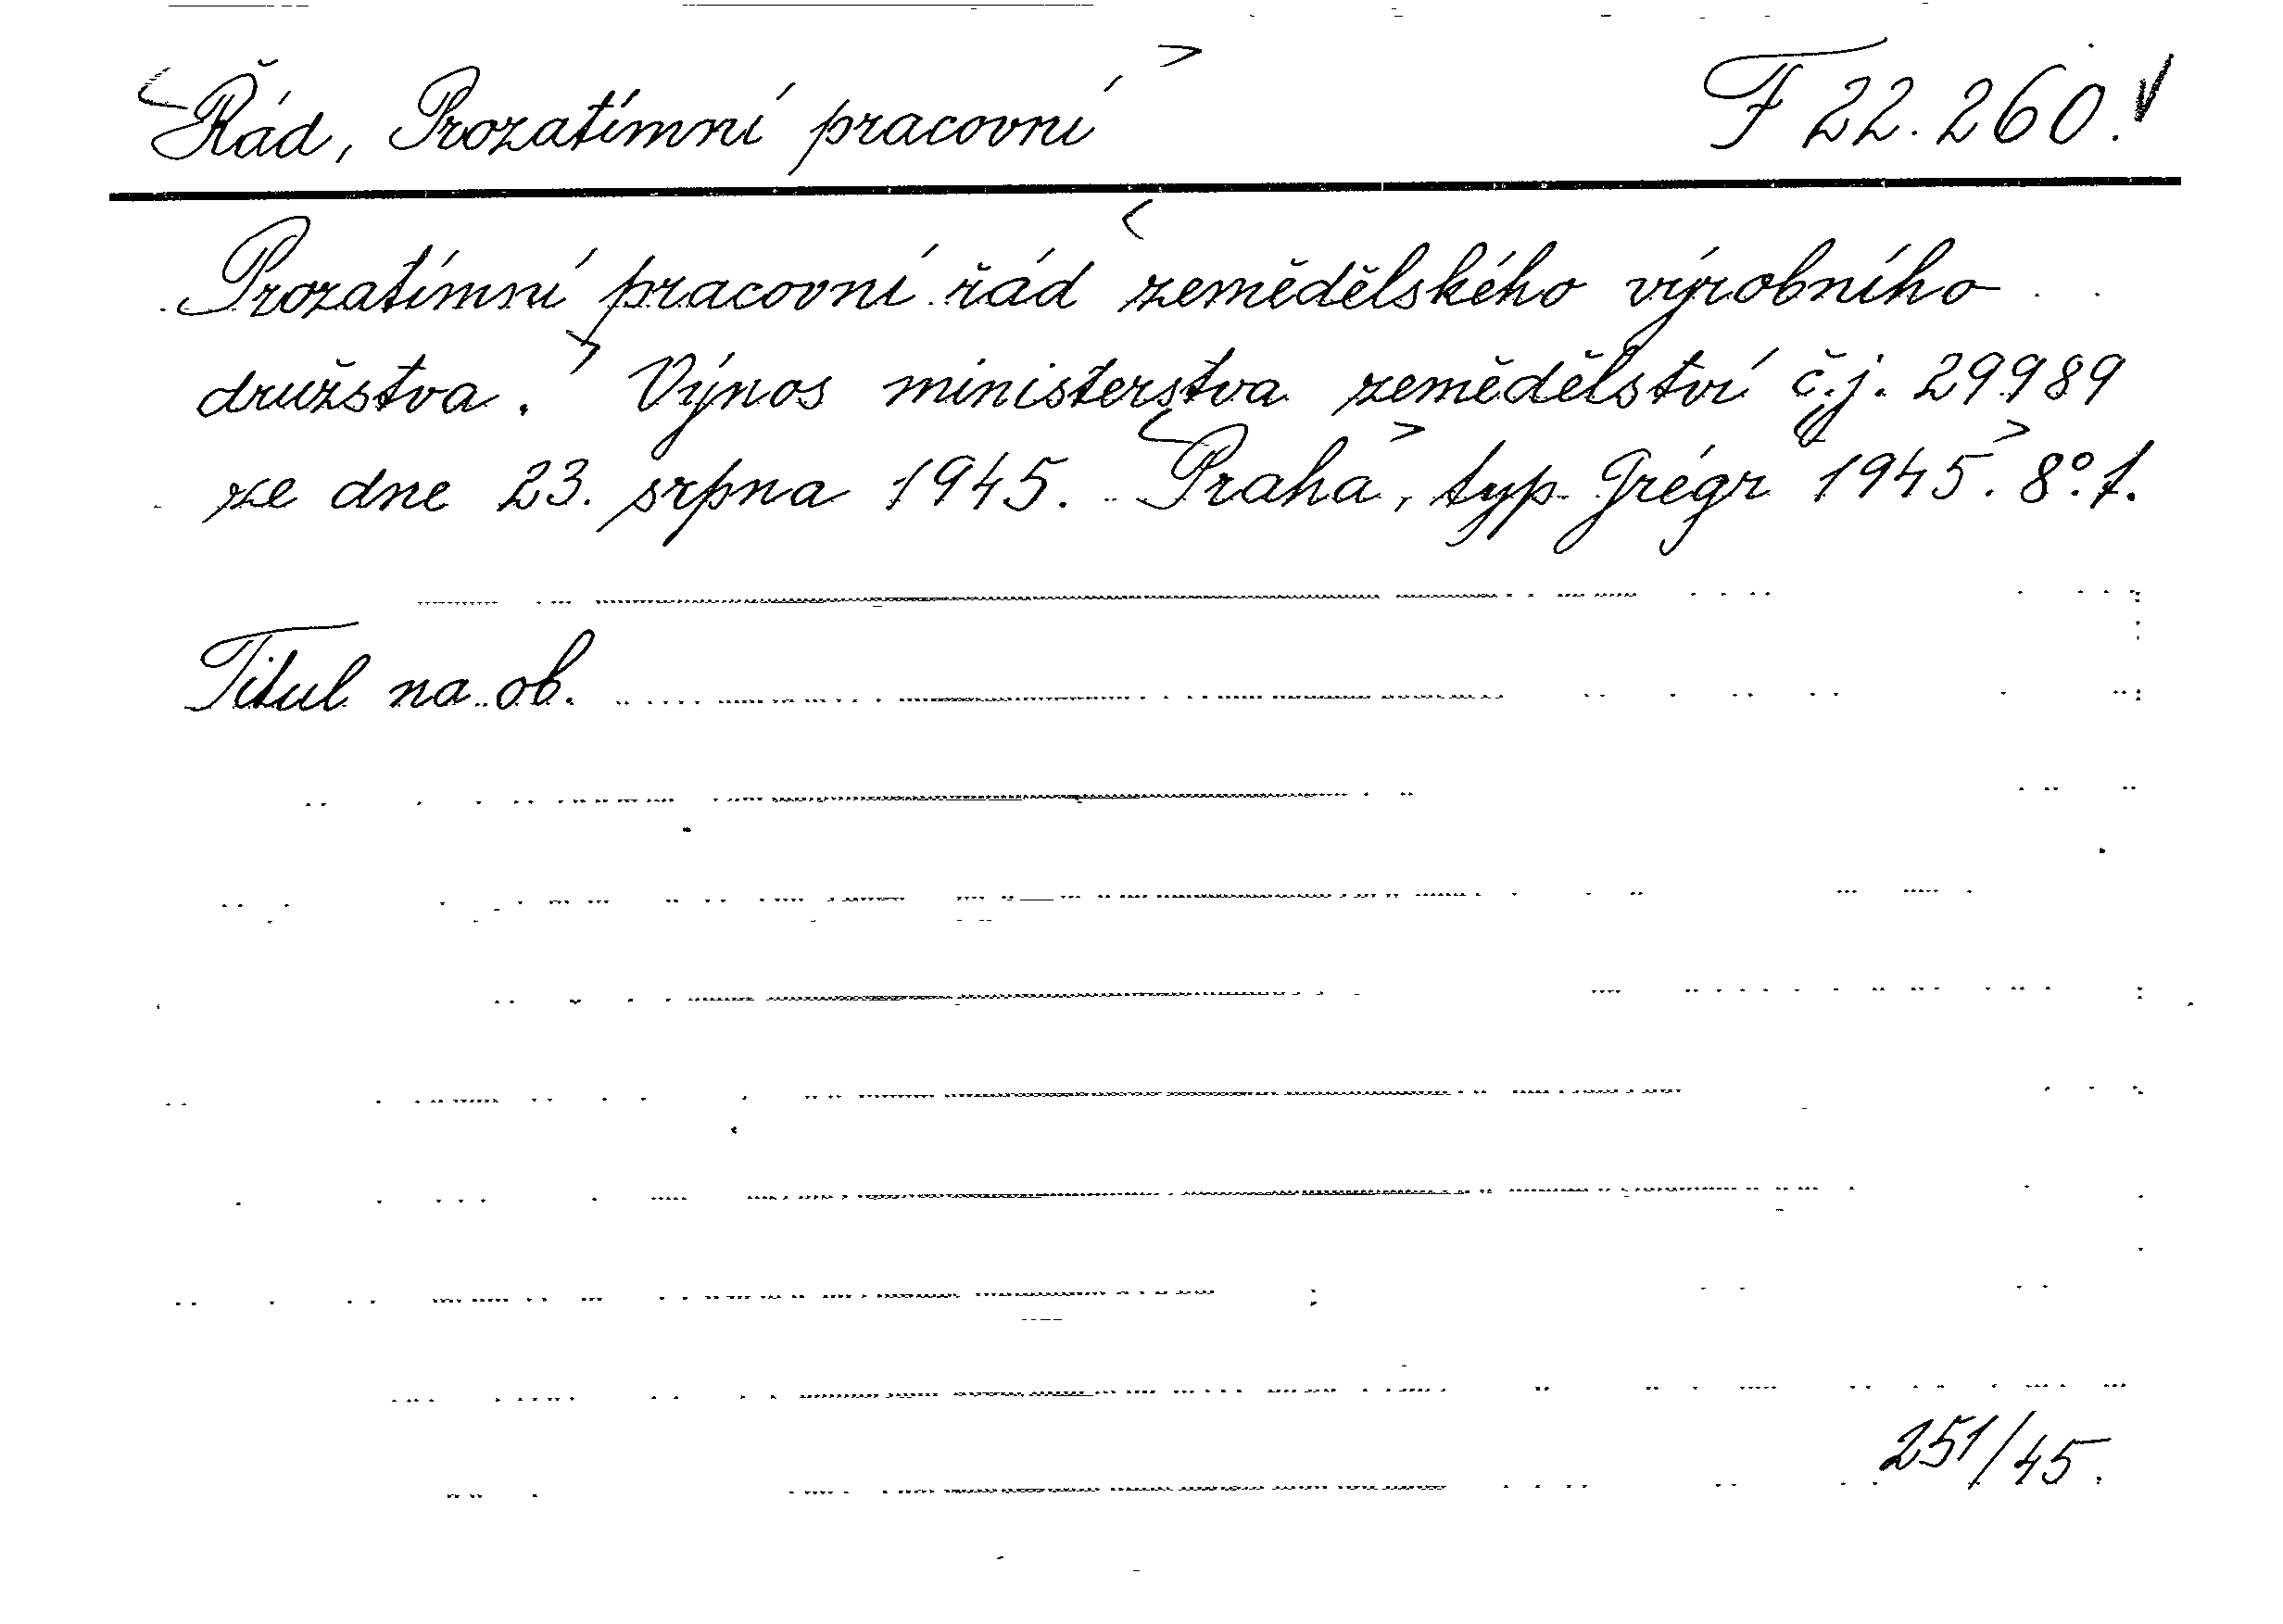 Řád, Prozatímní pracovní F 22.260.
Prozatímní pracovní řád zemědělského výrobního
družstva. Výnos ministerstva zemědělství č.j. 29989
ze dne 23. srpna 1945. Praha, typ. Grégr 1945. 8°. f.
Titul na ob.
251/45.